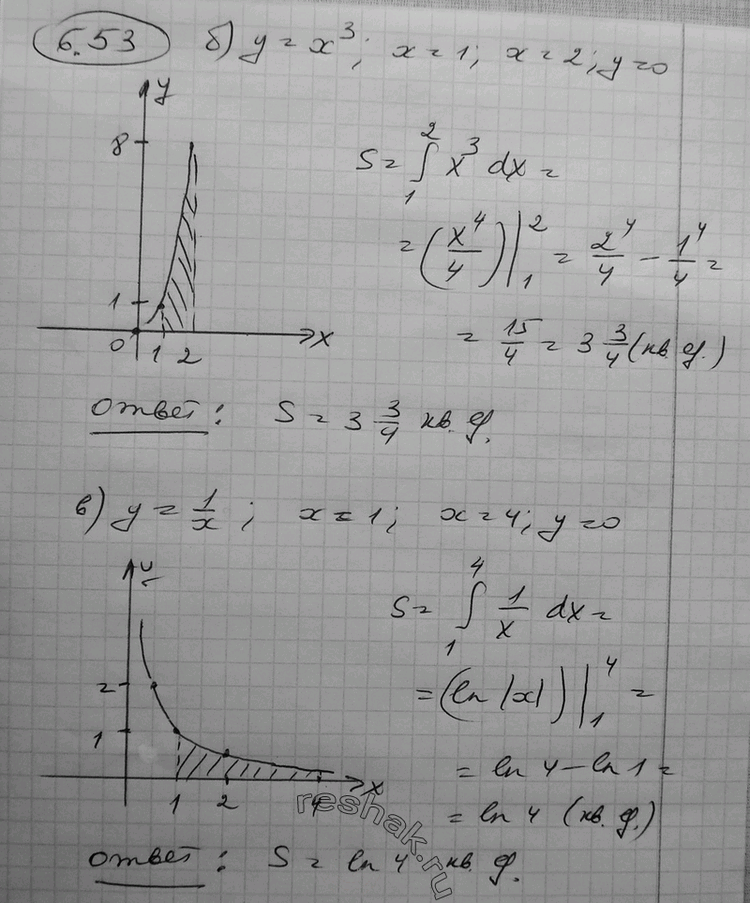 6.53 б) y = x³; x = 1; x = 2; y = 0
y
8
1
0 1 2 x
S = ∫₁² x³ dx =
= (x⁴/4)|₁² = 2⁴/4 − 1⁴/4 =
= 15/4 = 3 3/4 (кв. ф.)
Ответ: S = 3 3/4 кв. ф.
в) y = 1/x; x = 1; x = 4; y = 0
y
2
1
1 2 4 x
S = ∫₁⁴ 1/x dx =
= (ln |x|)|₁⁴ =
= ln 4 − ln 1 =
= ln 4 (кв. ф.)
Ответ: S = ln 4 кв. ф.
reshak.ru